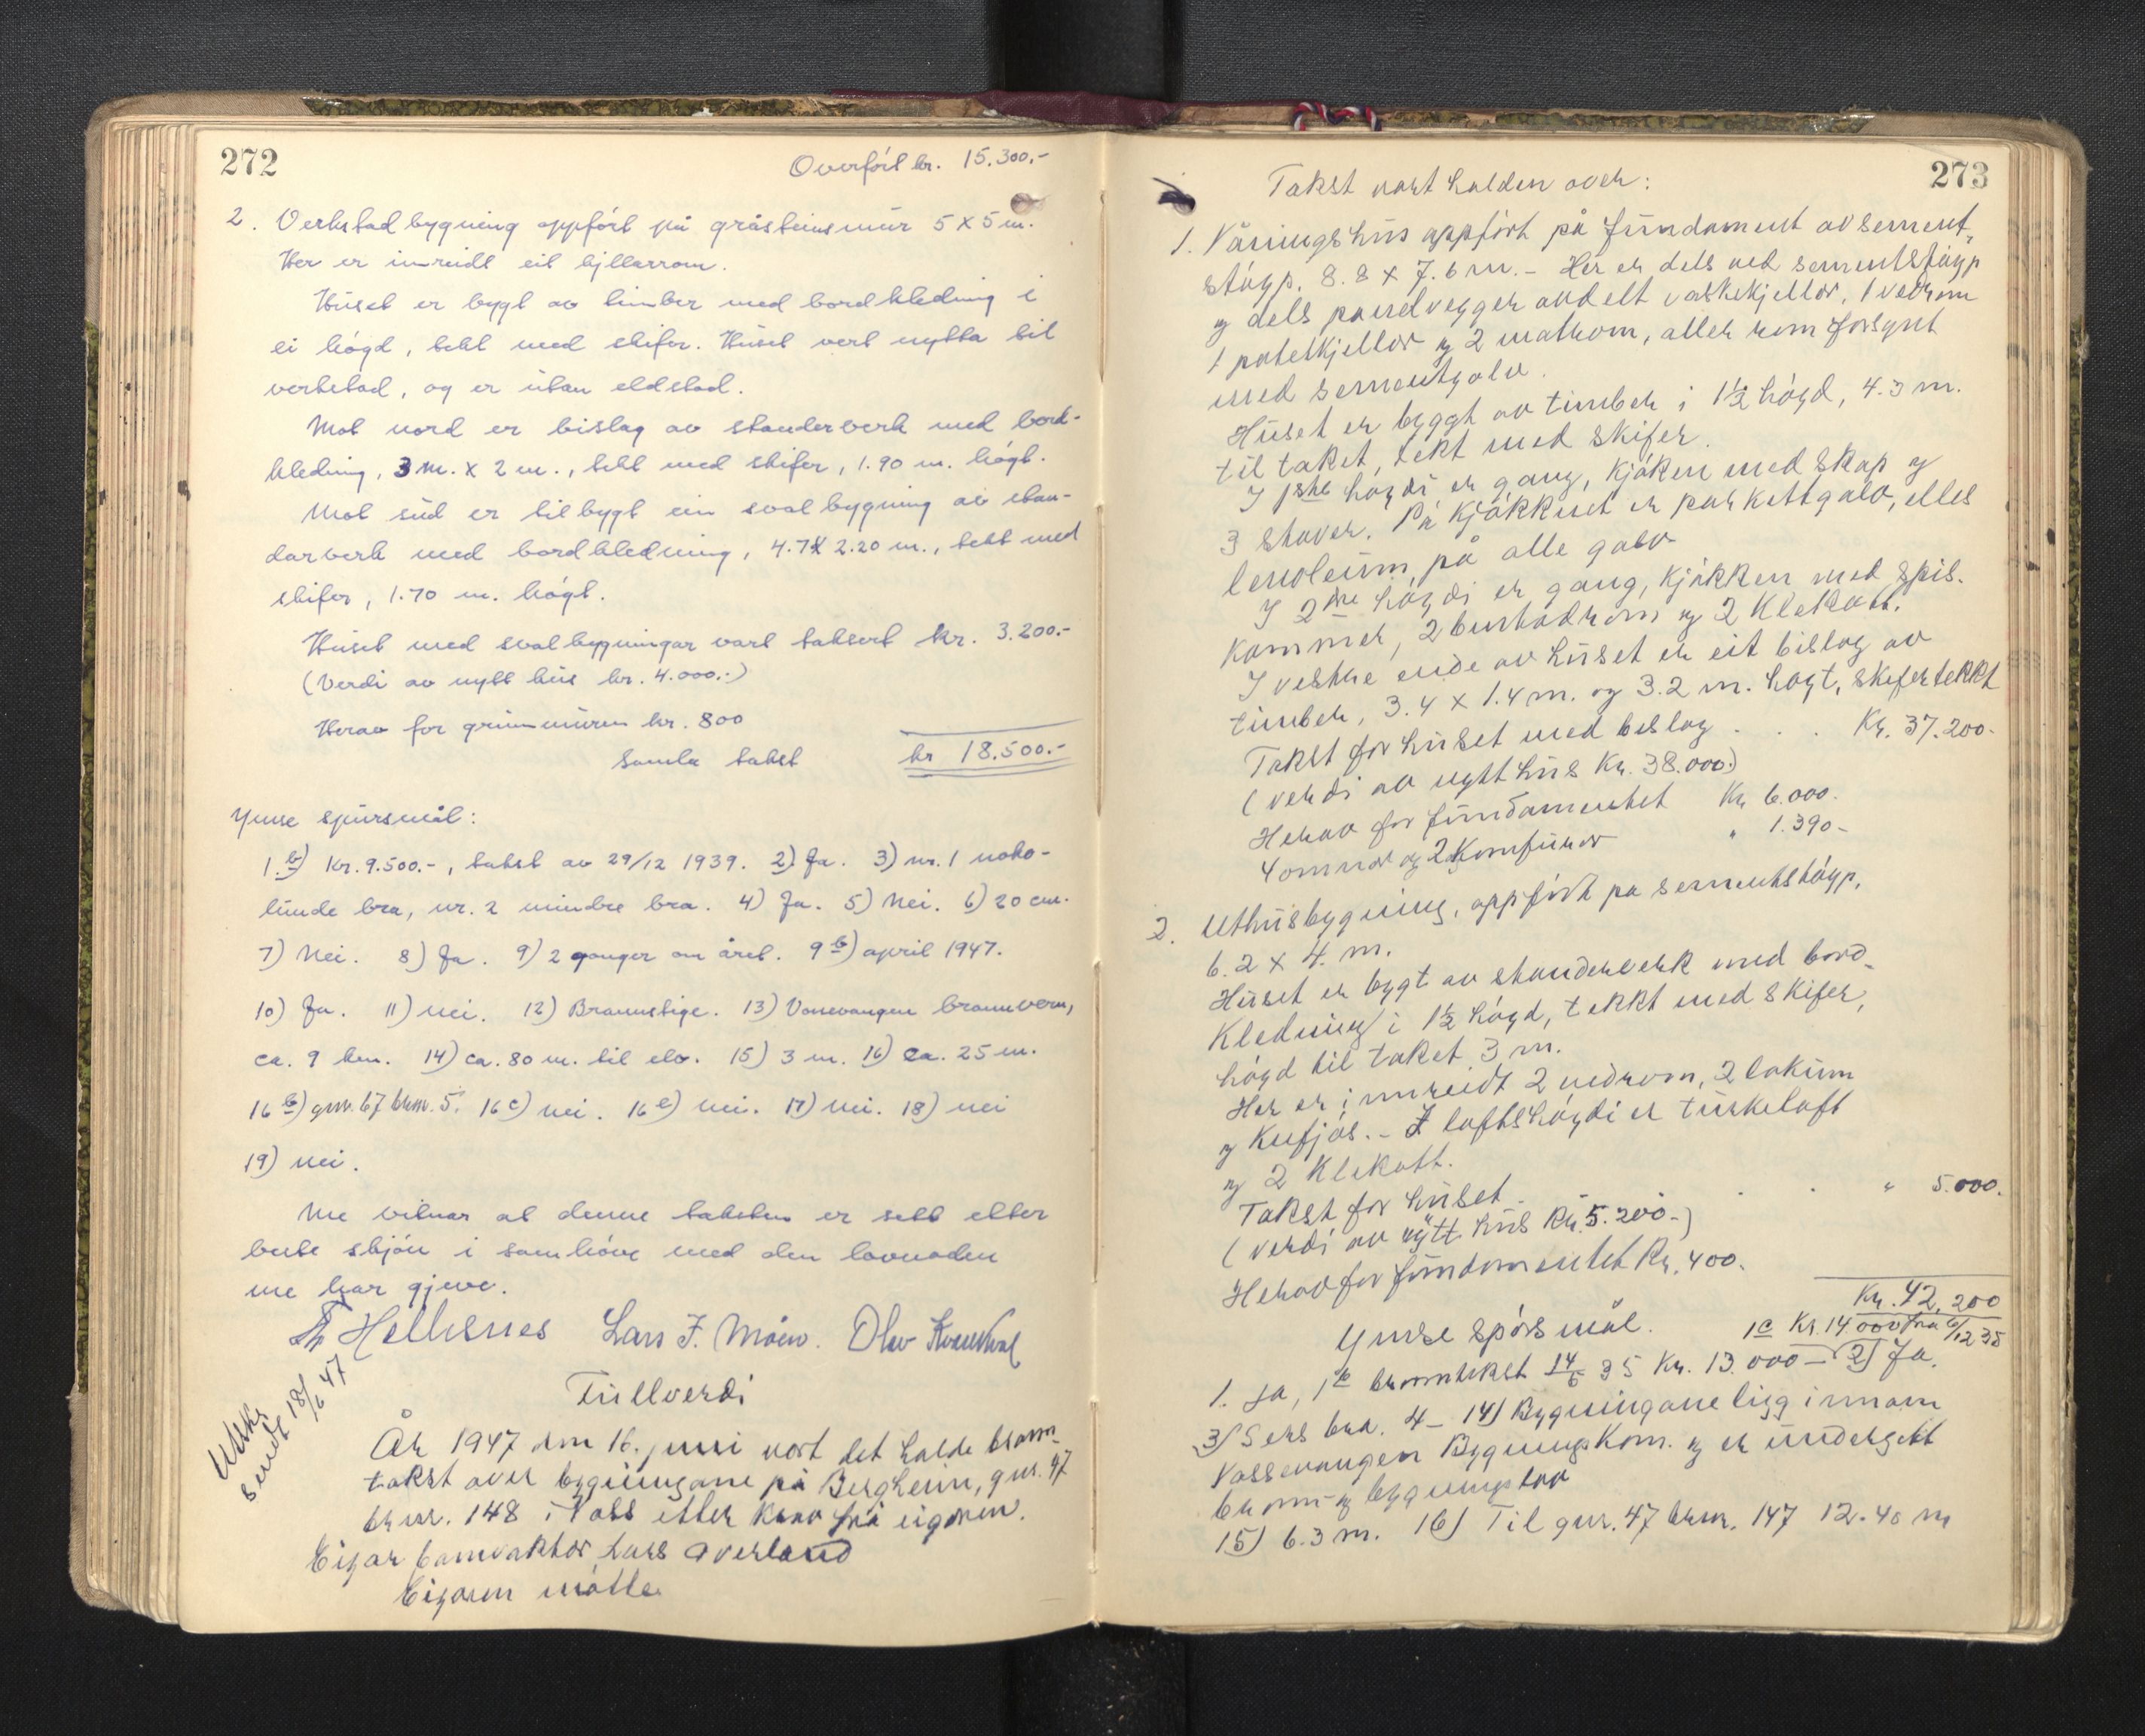 272
Overfört kr. 15.300.-
2. Verkstadbygning oppfört på gråsteinsmur 5 x 5 m.
Her er innreidt eit kjellarrom.
Huset er bygt av timber med bordkledning i
ei högd, tekt med skifer. Huset vert nytta til
verkstad, og er utan eldstad.
Mot nord er bislag av standerverk med bord-
kledning, 3 m. x 2 m., tekt med skifer, 1.90 m. högt.
Mot sud er tilbygt ein svalbygning av stan-
darverk med bordkledning, 4.7 x 2.20 m., tekt med
skifer, 1.70 m. högt.
Huset med svalbygningar vart taksert kr. 3.200.-
(Verdi av nytt hus kr. 4.000.-)
Herav for grunnmuren kr. 800
Samla takst kr 18.500.-
Ymse spursmål:
1.b) Kr. 9.500.-, takst av 29/12 1939. 2) Ja. 3) nr. 1 noko-
lunde bra, nr. 2 mindre bra. 4) Ja. 5) Nei. 6) 20 cm.
7) Nei. 8) Ja. 9) 2 gonger om året. 9b) april 1947.
10) Ja. 11) nei. 12) Brannstige. 13) Vossevangen brannvern,
ca. 9 km. 14) ca. 80 m. til elv. 15) 3 m. 16) ca. 25 m.
16b) gnr. 67 brnr. 5. 16c) nei. 16e) nei. 17) nei. 18) nei
19) nei.
Me vitnar at denne taksten er sett etter
beste skjön i samhöve med den lovnaden
me har gjeve.
Hellesnes Lars J. Möen. Olav Kvarekval
Utskr.
sendt 18/6 47
Fullverdi
År 1947 den 16. juni vart det halde brann-
takst over bygningane på Bergheim, gnr. 47
brnr. 148 i Voss etter krav frå eigaren.
Eigar Lars Överland
Eigaren mötte
273
Takst vart halden over:
1. Våningshus oppfört på fundament av sement-
stöyp, 8.8 x 7.6 m. - Her er dels ved sementstöyp
og dels panelvegger avdelt vaskekjellar, 1 vedrom
1 potetkjellar og 2 matrom, aller rom forsynt
med sementgolv.
Huset er byggt av timber i 1½ högd, 4.3 m.
til taket, tekt med skifer.
I 1ste högdi er gang, kjöken med skap og
3 stover. På kjökkenet er parkettgolv, elles
lenoleum på alle golv
I 2dre högdi er gang, kjökken med spis-
kammer, 2 rom og 2 klekott.
I vestre ende av huset er eit bislag av
timber, 3.4 x 1.4 m. og 3.2 m. högt, skifertekkt
Takst for huset med beslag . . . Kr. 37.200-
(verdi av nytt hus Kr. 38.000.)
Herav for fundamentet Kr. 6.000.
4 omnar og 2 komfurar " 1.390-
2. Uthusbygning, oppfört på sementstöyp,
6.2 x 4. m.
Huset er bygt av standerverk med bord-
kledning i 1½ högd, tekkt med skifer,
högd til taket 3 m.
Her er innreidt 2 vedrom, 2 lokum
og kufjös. - I loftshögdi er turkeloft
og 2 klekott.
Takst for huset . . . " 5.000.
(verdi av nytt hus Kr. 5.200-)
Herav for fundamentet Kr. 400.
Kr. 42,200
Ymse spörsmål. 1c Kr. 14 000 fra 6/12 38
1. Ja, 1b branntakst 14/6 35 Kr. 13.000 - 2) Ja.
3) Sers bra. 4 - 14) Bygningane ligg innom
Vossevangen Bygningskom. og er undergett
brann- og bygningslov
15) 6.3 m. 16) Til gnr. 47 brnr. 147 12.40 m